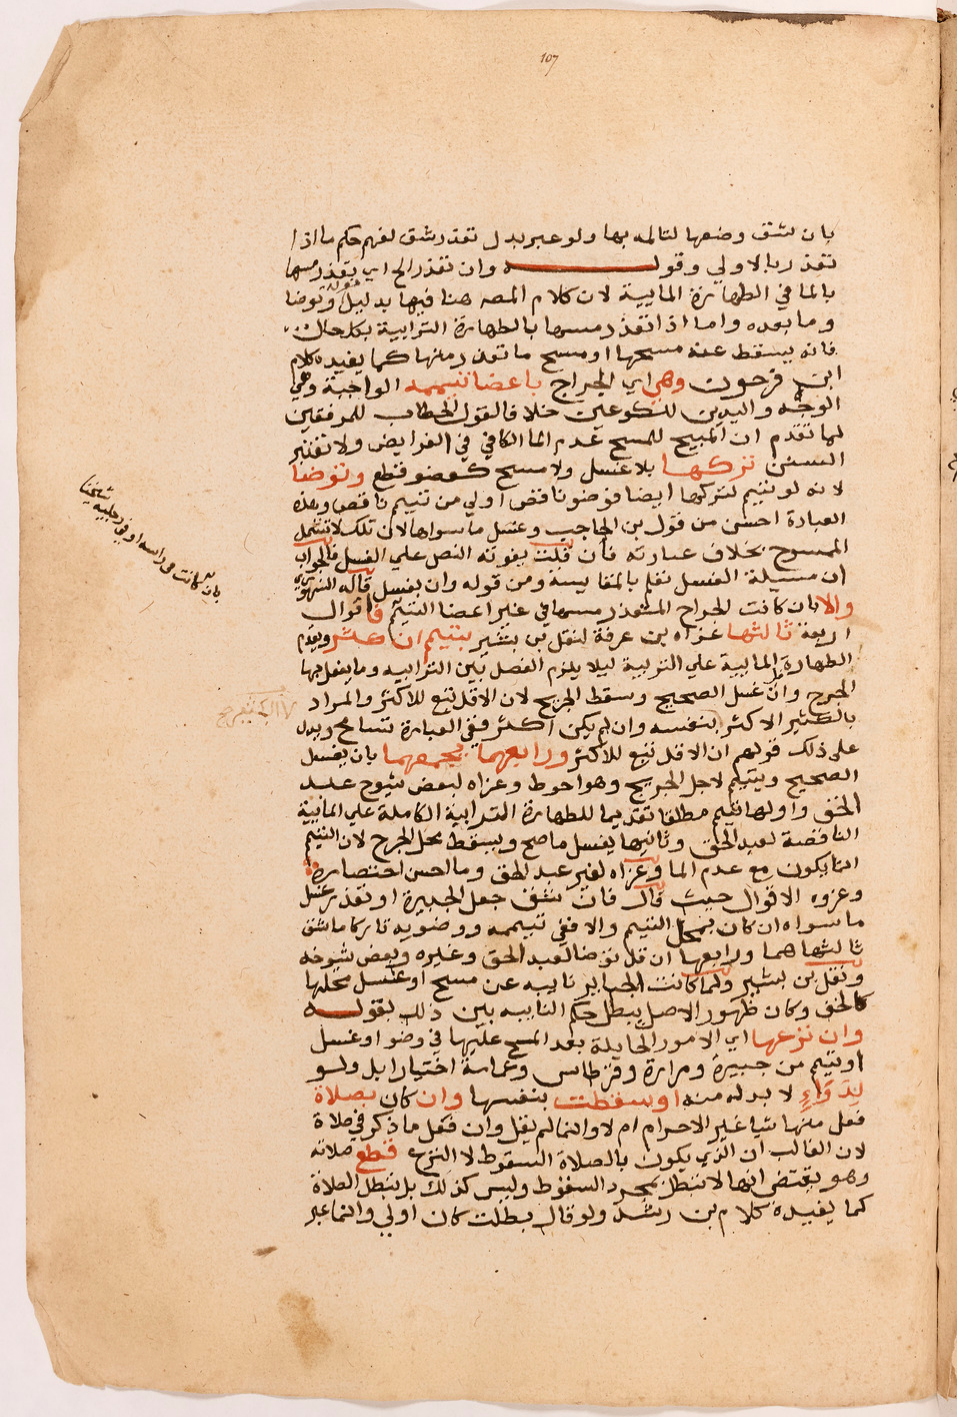 107
بان شق وضعها لتالمه بها ولو عبر بدل تعذر شق لفهم حكم ما اذا
تعذر بالاولي وقولــــه وان تعذر الخ اي تعذر مسها
بالما في الطهارة المايية لان كلام المصـ هنا فيها بدليل قوله وتوضا
وما بعده واما اذا تعذر مسها بالطهارة الترابية بكل حال
فانه يسقط عنه مسحها او مسح ما تعذر منها كما يفيده كلام
ابن فرحون وهي اي الجراح باعضا تيممه الواجبة وهي
الوجه واليدين للكوعين خلافا لقول الحطاب للمرفقين
لما تقدم ان المبيح للمسح عدم الما الكافي في الفرايض ولا تعتبر
السنن تركها بلا غسل ولا مسح كعضو قطع وتوضا
لانه لو تيمم لتركها ايضا فوضو ناقص اولي من تيمم ناقص وهذه
العبارة احسن من قول بن الحاجب وغسل ما سواها لان تلك لا تشمل
الممسوح بخلاف عبارته فان قلت يفوته النص علي الغسل فالجواب
ان مسيلة الغسل تعلم بالمقايسة ومن قوله وان بغسل قاله السنهوري
والا بان كانت الجراح المتعذر مسها في غير اعضا التيمم فاقوال
اربعة ثالثها عزاه بن عرفة لنقل بن بشير يتيمم ان كثر ويقدم
الطهارة المايية علي التربية ليلا يلزم الفصل بين الترابيه وما يفعل بها
الجرح وان قل غسل الصحيح وسقط الجريح لان الاقل تبع للاكثر والمراد
بالكثير الاكثر بنفسه وان لم يكن اكثر ففي العبارة تسامح ويدل
علي ذلك قولهم ان الاقل تبع للاكثر ورابعها يجمعهما بان يغسل
الصحيح ويتيمم لاجل الجريح وهو احوط وعزاه لبعض شيوخ عبد
الحق واولها تيمم مطلقا تقديما للطهارة الترابية الكاملة علي المائية
الناقصة لعبد الحق وثانيها يغسل ما صح ويسقط محل الجرح لان التيمم
انما يكون مع عدم الما وعزاه لغير عبد الحق وما احسن اختصاره
وعزوه الاقوال حيث قال فان شق جعل الجبيرة او تعذر غسل
ما سواه ان كان بمحل التيمم والا ففي تيممه ووضويه تاركا ما شق
ثالثها هما ورابعها ان قل توضا لعبد الحق وغيره وبعض شيوخه
ونقل بن بشير ولما كانت الجباير نايبه عن مسح او غسل محلها
كالخف وكان ظهور الاصل يبطل حكم النايبه بين ذلك بقولــه
وان نزعها اي الامور الحايلة بعد المسح عليها في وضو او غسل
او تيمم من جبيرة ومرارة وقرطاس وعمامة اختيارا بل ولو
لدواء لا بد له منه او سقطت بنفسها وان كان بصلاة
فعل منها شيا غير الاحرام ام لا وانما لم يقل وان فعل ما ذكر في صلاة
لان الغالب ان الذي يكون بالصلاة السقوط لا النزع قطع صلاته
وهو يقتضي انها لا تبطل بمجرد السقوط وليس كذلك بل تبطل الصلاة
كما يفيده كلام بن رشد ولو قال بطلت كان اولي وانما عبر
بان كانت في راسه او في رجليه شيخنا